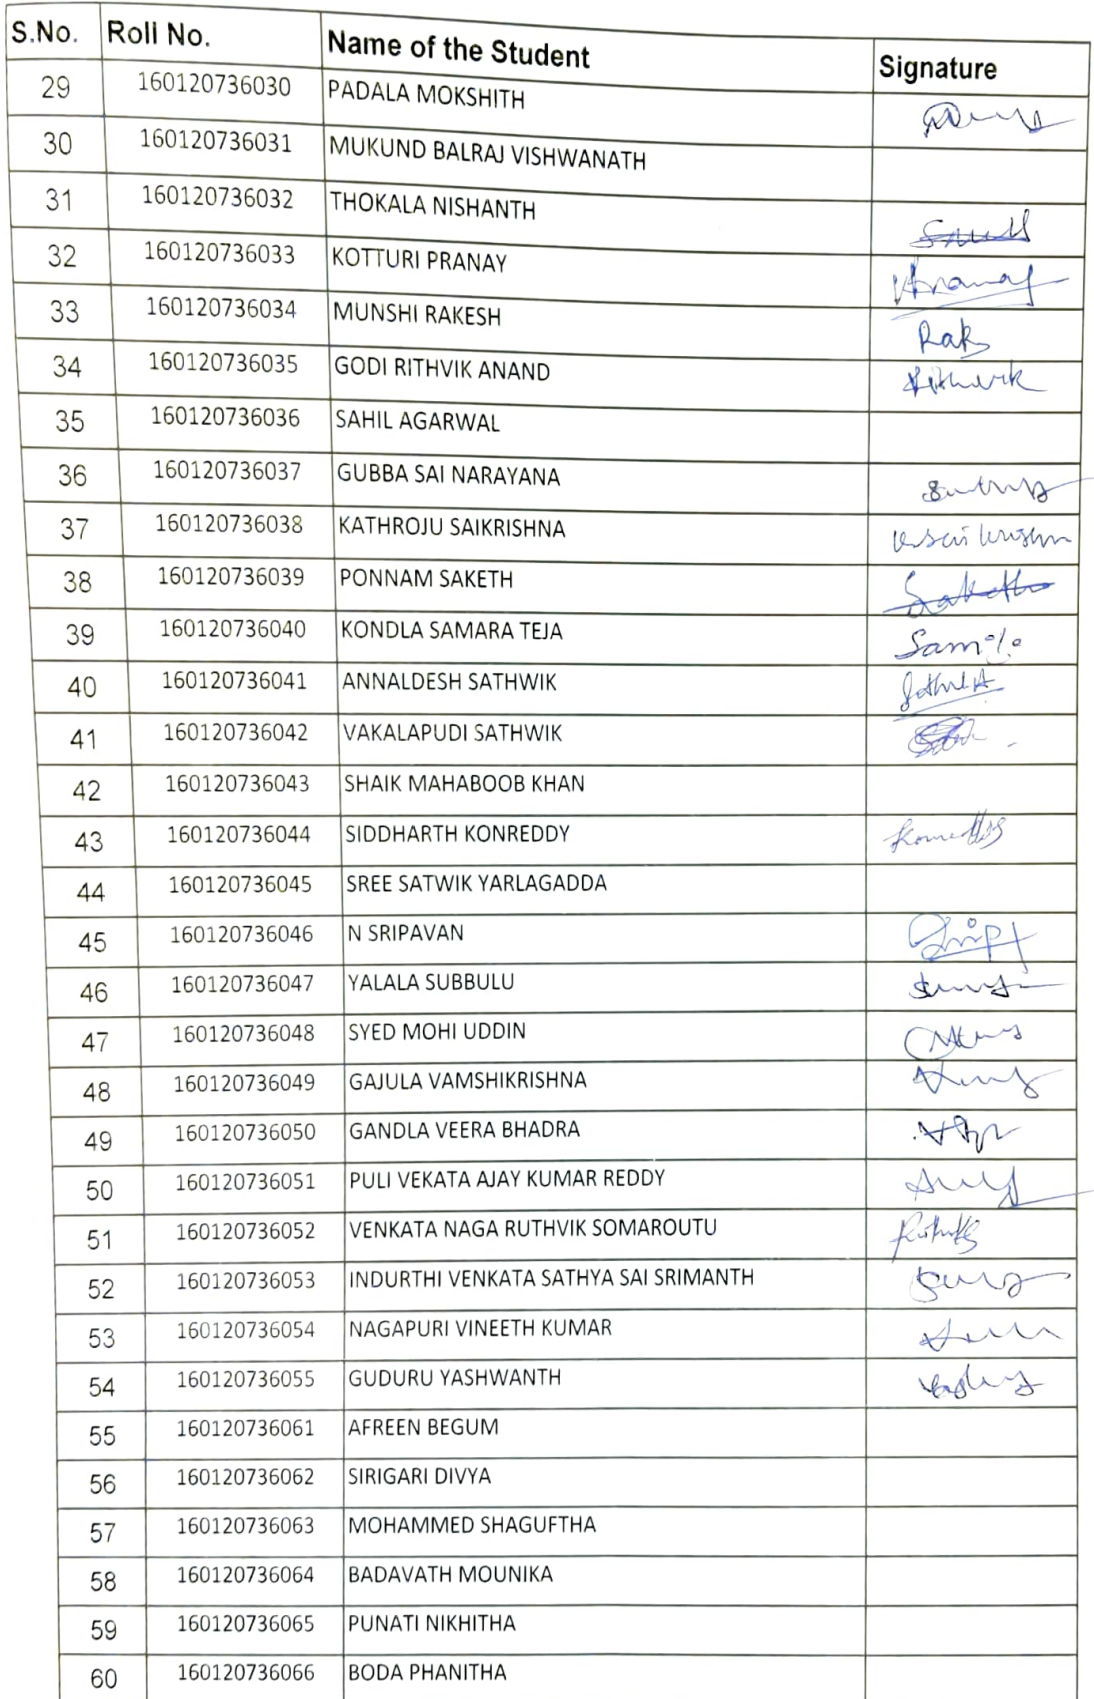 S.No. Roll No. Name of the Student Signature
29 160120736030 PADALA MOKSHITH
30 160120736031 MUKUND BALRAJ VISHWANATH
31 160120736032 THOKALA NISHANTH
32 160120736033 KOTTURI PRANAY
33 160120736034 MUNSHI RAKESH
34 160120736035 GODI RITHVIK ANAND Rithvik
35 160120736036 SAHIL AGARWAL
36 160120736037 GUBBA SAI NARAYANA
37 160120736038 KATHROJU SAIKRISHNA
38 160120736039 PONNAM SAKETH Saketh
39 160120736040 KONDLA SAMARA TEJA
40 160120736041 ANNALDESH SATHWIK
41 160120736042 VAKALAPUDI SATHWIK
42 160120736043 SHAIK MAHABOOB KHAN
43 160120736044 SIDDHARTH KONREDDY
44 160120736045 SREE SATWIK YARLAGADDA
45 160120736046 N SRIPAVAN
46 160120736047 YALALA SUBBULU
47 160120736048 SYED MOHI UDDIN
48 160120736049 GAJULA VAMSHIKRISHNA
49 160120736050 GANDLA VEERA BHADRA
50 160120736051 PULI VEKATA AJAY KUMAR REDDY
51 160120736052 VENKATA NAGA RUTHVIK SOMAROUTU
52 160120736053 INDURTHI VENKATA SATHYA SAI SRIMANTH
53 160120736054 NAGAPURI VINEETH KUMAR
54 160120736055 GUDURU YASHWANTH
55 160120736061 AFREEN BEGUM
56 160120736062 SIRIGARI DIVYA
57 160120736063 MOHAMMED SHAGUFTHA
58 160120736064 BADAVATH MOUNIKA
59 160120736065 PUNATI NIKHITHA
60 160120736066 BODA PHANITHA